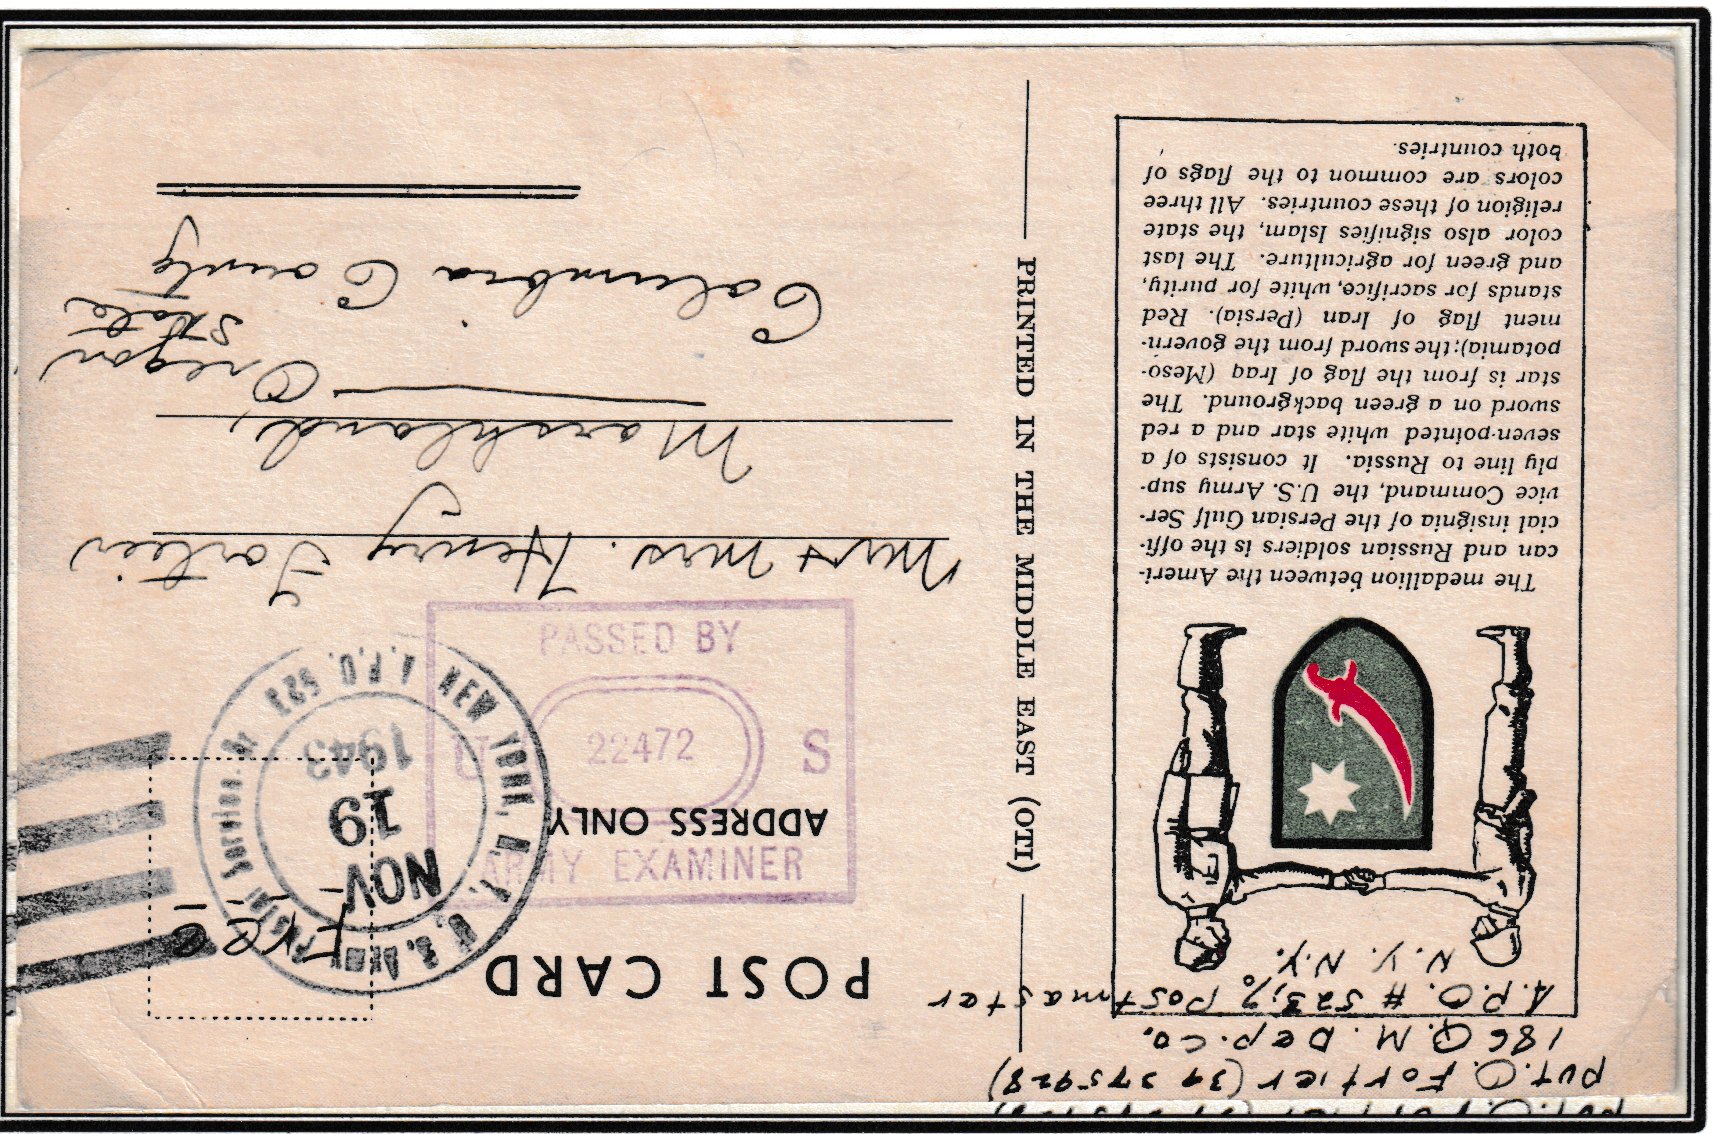 Pvt. O. Fortier (39375928)
186 Q.M. Dep. Co.
A.P.O. # 523, % Postmaster
N.Y. N.Y.
The medallion between the Ameri-
can and Russian soldiers is the offi-
cial insignia of the Persian Gulf Ser-
vice Command, the U.S. Army sup-
ply line to Russia. It consists of a
seven-pointed white star and a red
sword on a green background. The
star is from the flag of Iraq (Meso-
potamia); the sword from the govern-
ment flag of Iran (Persia). Red
stands for sacrifice, white for purity,
and green for agriculture. The last
color also signifies Islam, the state
religion of these countries. All three
colors are common to the flags of
both countries.
PRINTED IN THE MIDDLE EAST (OTI)
POST CARD
ADDRESS ONLY
Free
U.S. Army Postal Service A.P.O. 523 NEW YORK, N.Y.
NOV
19
1943
PASSED BY
U 22472 S
ARMY EXAMINER
Mr + Mrs. Henry Fortier
Marshland,
Oregon
State
Columbia County